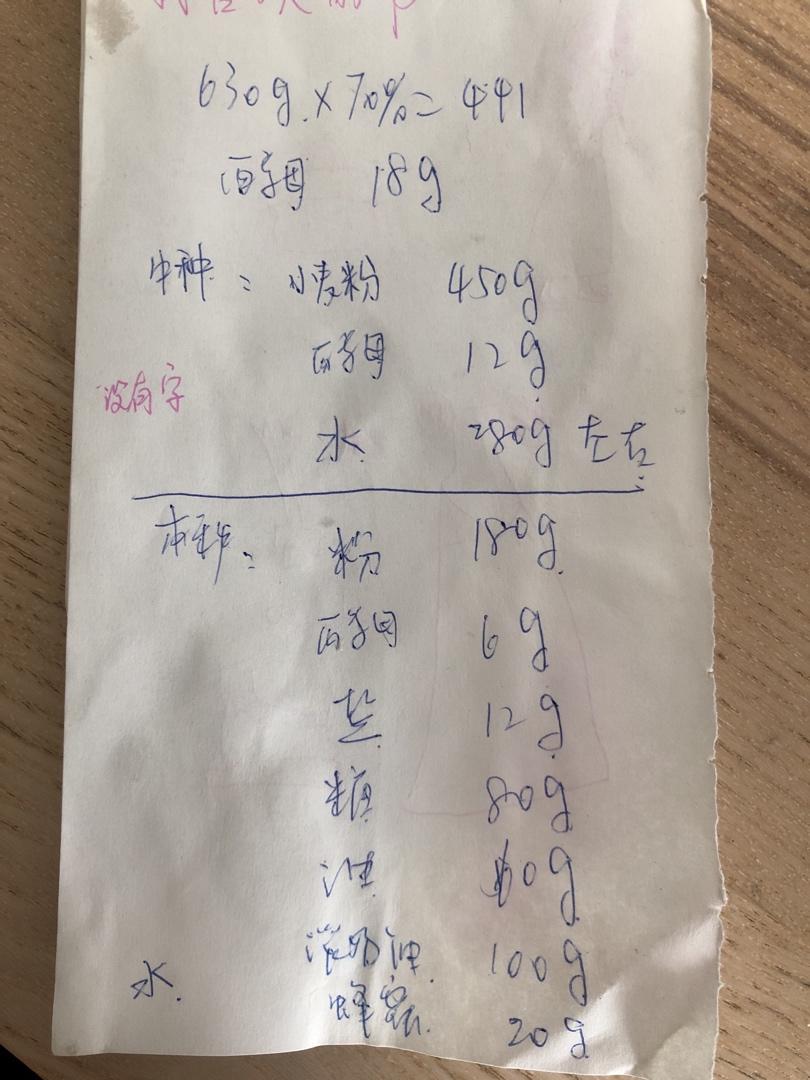 630g × 70% = 441
酵母 18g
中种: 麦粉 450g
酵母 12g
没有字
水 280g 左右
本种: 粉 180g
酵母 6g
盐 12g
糖 80g
油 60g
淡奶油 100g
水.
蜂蜜. 20g